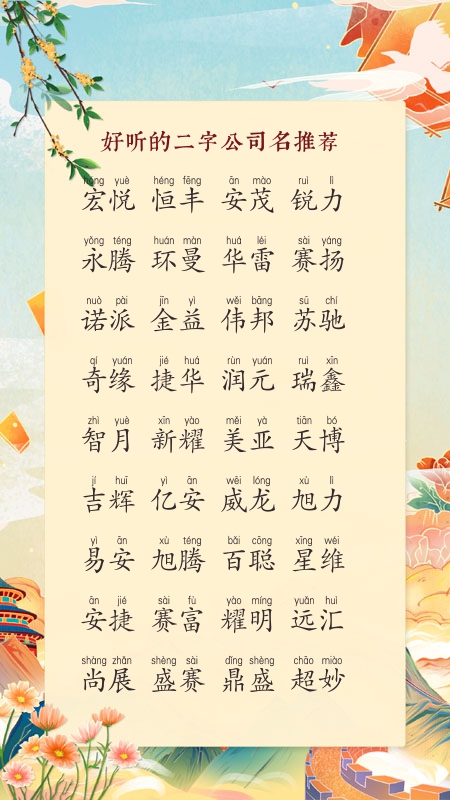 好听的二字公司名推荐
hóng yuè héng fēng ān mào ruì lì
宏悦 恒丰 安茂 锐力
yǒng téng huán màn huá léi sài yáng
永腾 环曼 华雷 赛扬
nuò pài jīn yì wěi bāng sū chí
诺派 金益 伟邦 苏驰
qí yuán jié huá rùn yuán ruì xīn
奇缘 捷华 润元 瑞鑫
zhì yuè xīn yào měi yà tiān bó
智月 新耀 美亚 天博
jí huī yì ān wēi lóng xù lì
吉辉 亿安 威龙 旭力
yì ān xù téng bǎi cōng xīng wéi
易安 旭腾 百聪 星维
ān jié sài fù yào míng yuǎn huì
安捷 赛富 耀明 远汇
shàng zhǎn shèng sài dǐng shèng chāo miào
尚展 盛赛 鼎盛 超妙